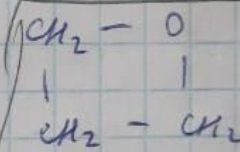 CH₂ — O
|   |
CH₂ — CH₂